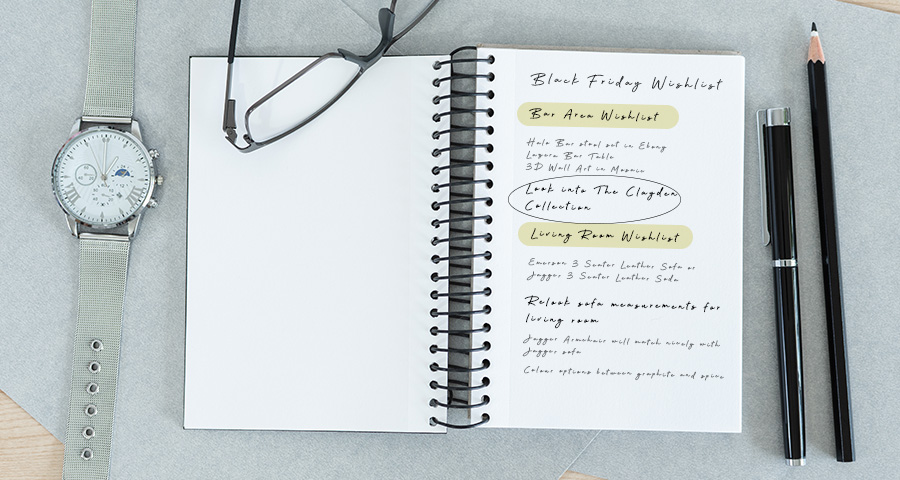 Black Friday Wishlist
Bar Area Wishlist
Halo Bar stool set in Ebony
Layera Bar Table
3D Wall Art in Mosaic
Look into The Clayden
Collection
Living Room Wishlist
Emerson 3 Seater Leather Sofa or
Jagger 3 Seater Leather Soda
Relook sofa measurements for
living room
Jagger Armchair will match nicely with
Jagger sofa
Colour options between graphite and spice